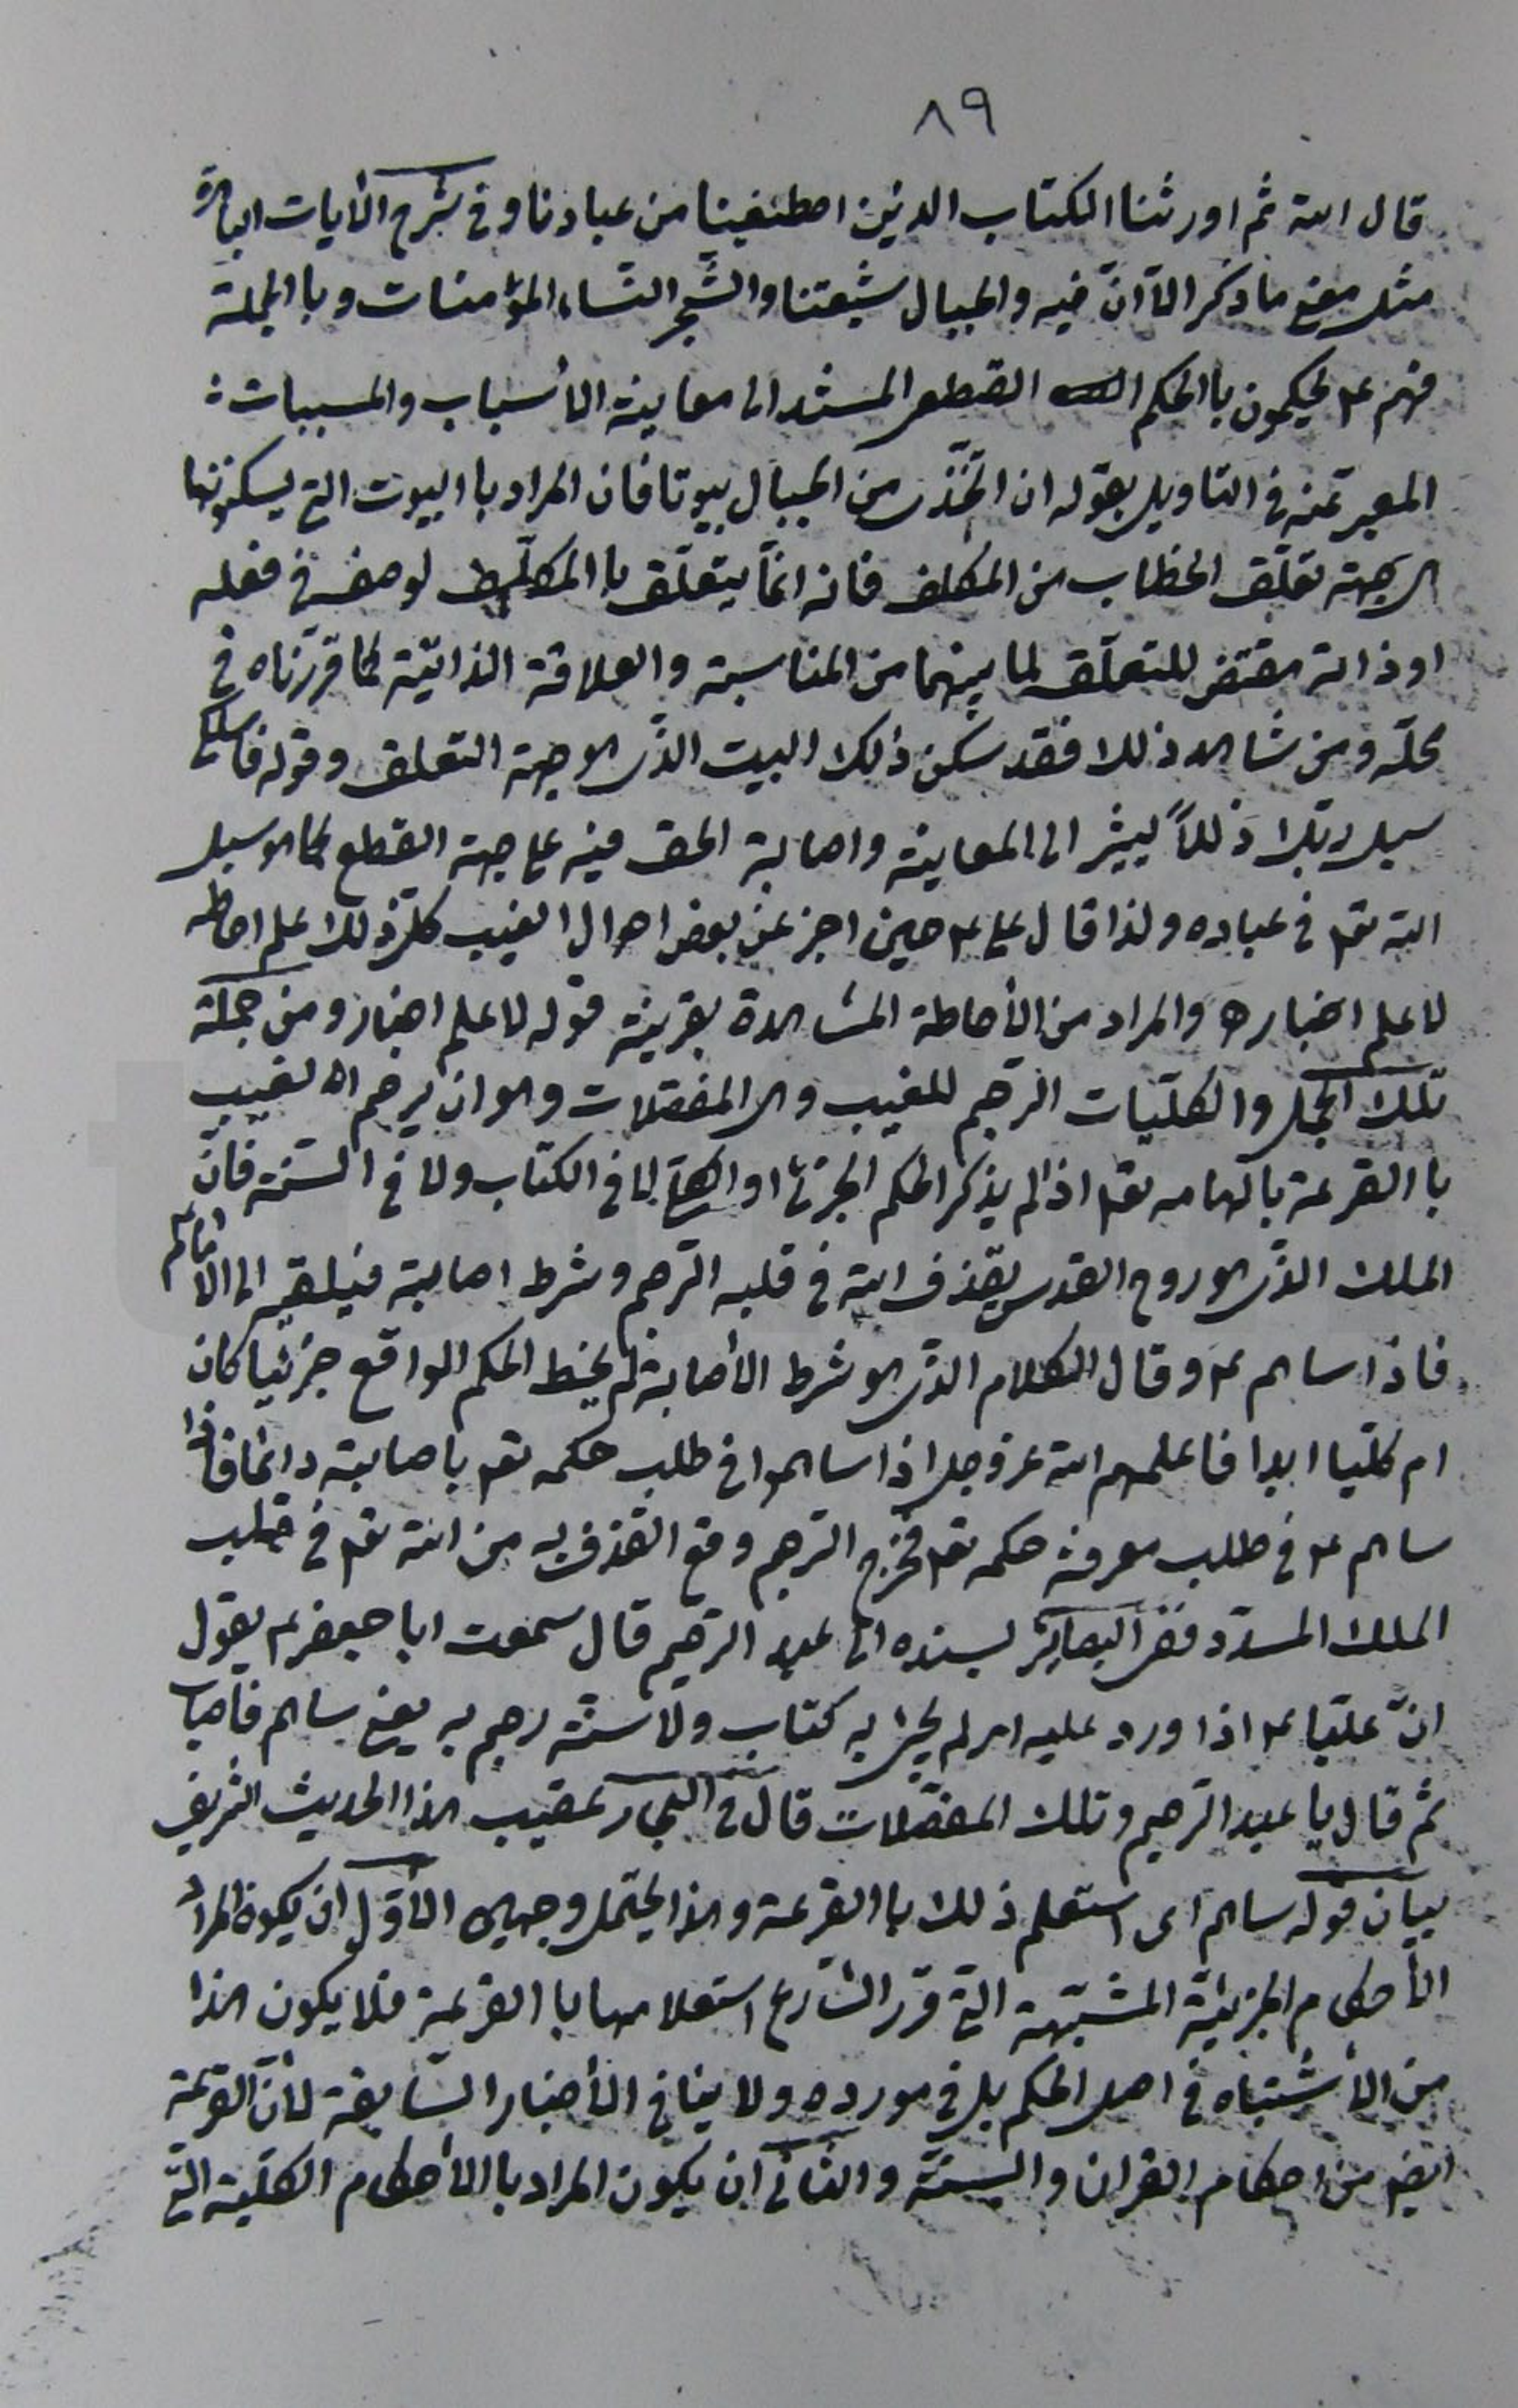 ٨٩
قال الله ثم اورثنا الكتاب الذين اصطفينا من عبادنا وفى شرح الأيات الباهرة
مثل معنى ما ذكر الّا انّ فيه والجبال شيعتنا والشّجر النّساء المؤمنات وبا الجملة
فهم ع يحكمون با الحكم القطعى المستند الى معاينة الأسباب والمسببات
المعبر عنه فى التاويل بقوله ان اتّخذى من الجبال بيوتا فان المراد با البيوت التى يسكنونها
هى جهة تعلّق الخطاب من المكلف فانه انّما يتعلّق با المكلف لوصف فى فعله
او ذاته مقتض للتعلّق لما بينهما من المناسبة والعلاقة الذاتيّة كما قررّناه فى
محلّه ومن شاهد ذلك فقد سكن ذلك البيت الذّى هو جهة التعلق وقوله فاسلكى
سبل ربّك ذللاً يشير الى المعاينة واصابة الحق فيه على جهة القطع كما هو سبيل
الله تعـ فى عباده ولذا قال على ع حين اخبر عن بعض احوال الغيب كلّ ذلك علم احاطه
لا علم اخباره والمراد من الأحاطة المشاهدة بقرينة قوله لا علم اخبار ومن جملة
تلك الجمل والكلّيات الرجم للمغيب وهى المفصّلات وهو ان يرجم الامام لغيب
با القرعة بالهامه تعـ اذا لم يذكر الحكم الجزئى او الكلّى لا فى الكتاب ولا فى السّنة فانّ
الملك الذّى هو روح القدس يقذف الله فى قلبه الرّجم وشرط اصابته فيلقيه الى الامام ع
فاذا ساهم ع وقال الكلام الذّى هو شرط الأصابة لم يخط الحكم الواقع جزئيا كان
ام كلّيا ابدا فاعلمهم الله عزوجل اذا ساهموا فى طلب حكمه تعـ باصابته دائما فاذا
ساهم ع فى طلب معرفة حكمه تعـ فخرج الرّجم وقع القذف به من الله تعـ فى قلب
الملك المسدّد ففى البصائر بسنده الى عبد الرّحيم قال سمعت ابا جعفر ع يقول
انّ عليّا ع اذا ورد عليه امر لم يجئ به كتاب ولا سنّة رجم به يعنى ساهم فاصاب
ثم قال يا عبد الرّحيم وتلك المفصّلات قال فى البحار عقيب هذا الحديث الشريف
بيان قوله ساهم اى استعلم ذلك با القرعة وهذا يحتمل وجهين الأوّل ان يكون المراد
الأحكام الجزئيّة المشتبهة التى قرر الشّارع استعلامها با القرعة فلا يكون هذا
من الأشتباه فى اصل الحكم بل فى مورده ولا ينافى الأخبار السّابقة لأنّ القرعة
ايضا من احكام القران والسّنّة والثانى ان يكون المراد با الأحكام الكلّية التى